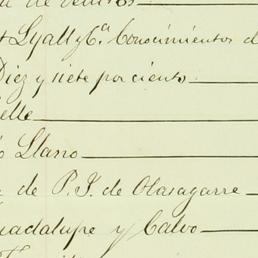 de
t Lyall y Cª. Conocimientos d
Diez y siete por ciento
elle
o Llano
de P. J. de Olasagarre
uadalupe y Calvo